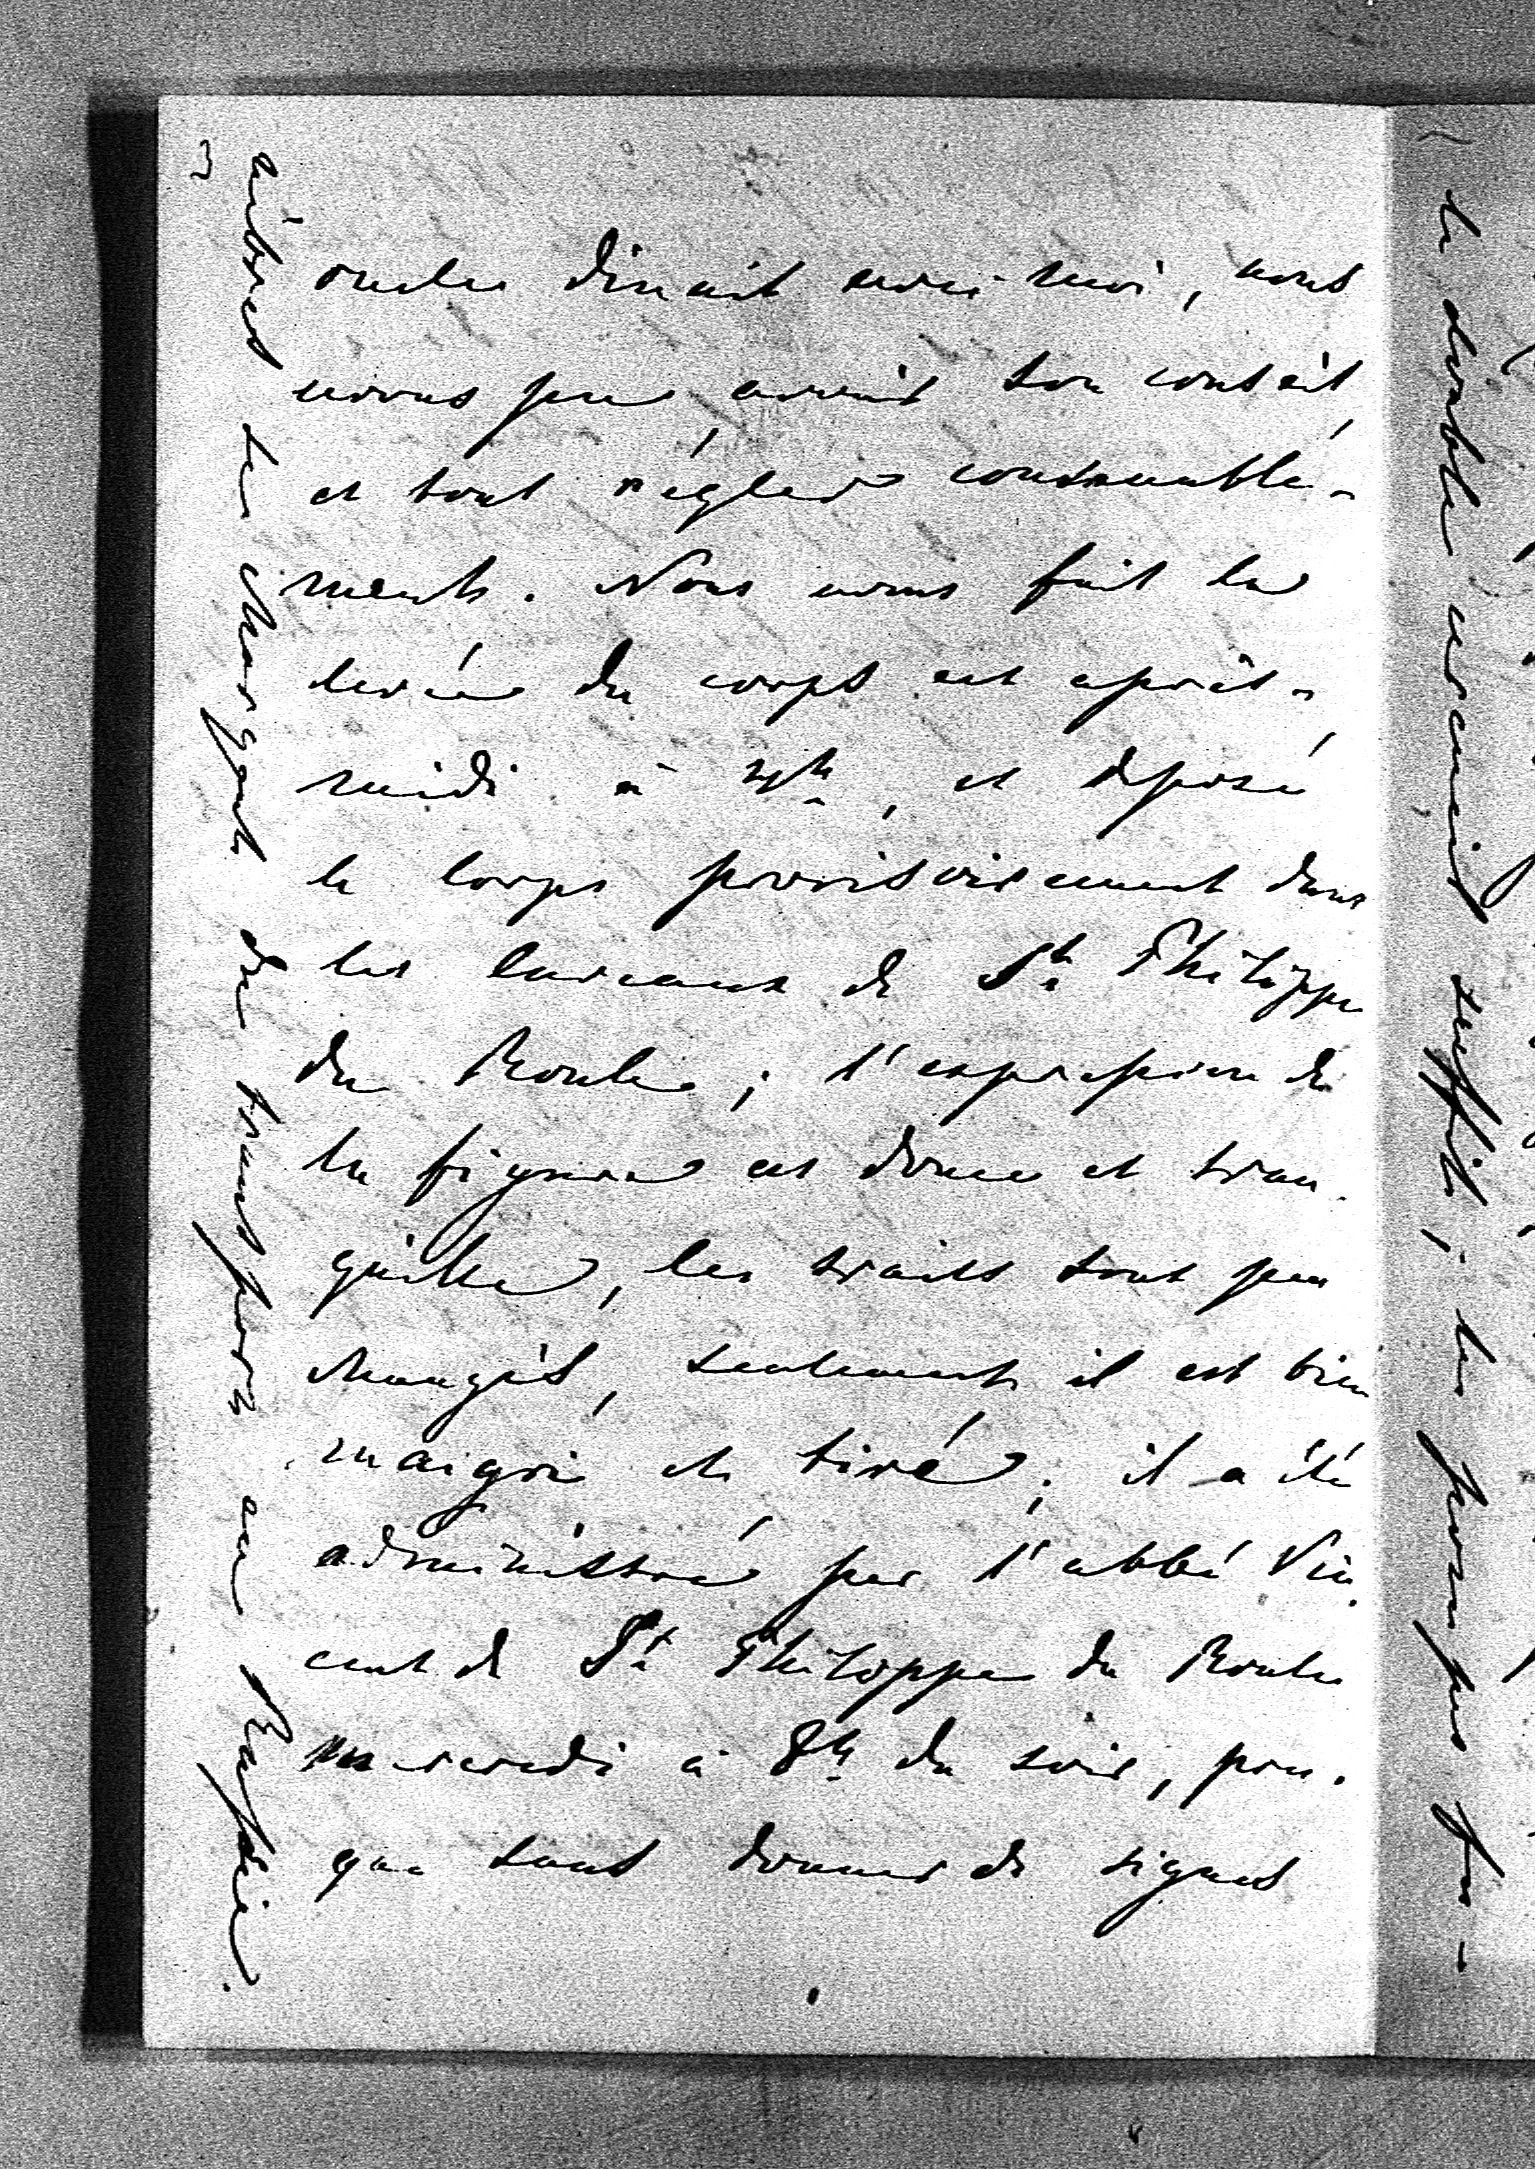 oncle dinait avec moi, nous
avons pu avoir son conseil
et tout régler convenable-
ment. Nous avons fait la
levée du corps cet après-
midi à 4h, et déposé
le corps provisoirement dans
les caveaux de St Philippe
du Roule ; l'expression de
la figure est douce et tran-
quille, les traits sont peu
changés, seulement il est bien
maigri et tiré ; il a été
administré par l'abbé Vin-
cent de St Philippe du Roule
mercredi à 8h du soir, pres-
que sans donner de signes
du transport au
le diable serait suffit ; les